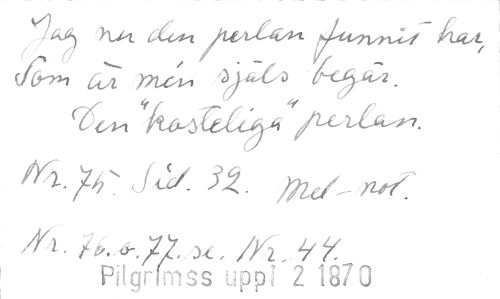 Jag nu den perlan funnit har,
Som är min själs begär.
Den "kosteliga" perlan.
Nr. 75. Sid. 32. Mel-not.
Nr. 76. o. 77. se. Nr. 44.
Pilgrimss uppl 2 1870